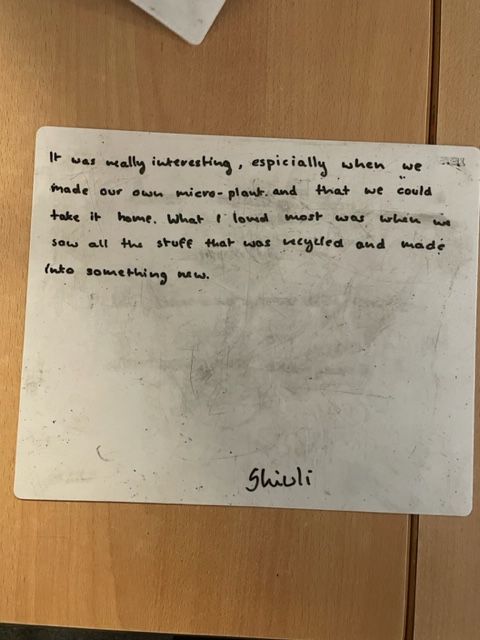 It was really interesting, espicially when we
made our own micro-plant. and that we could
take it home. What I loved most was when we
saw all the stuff that was recycled and made
into something new.
Shiuli